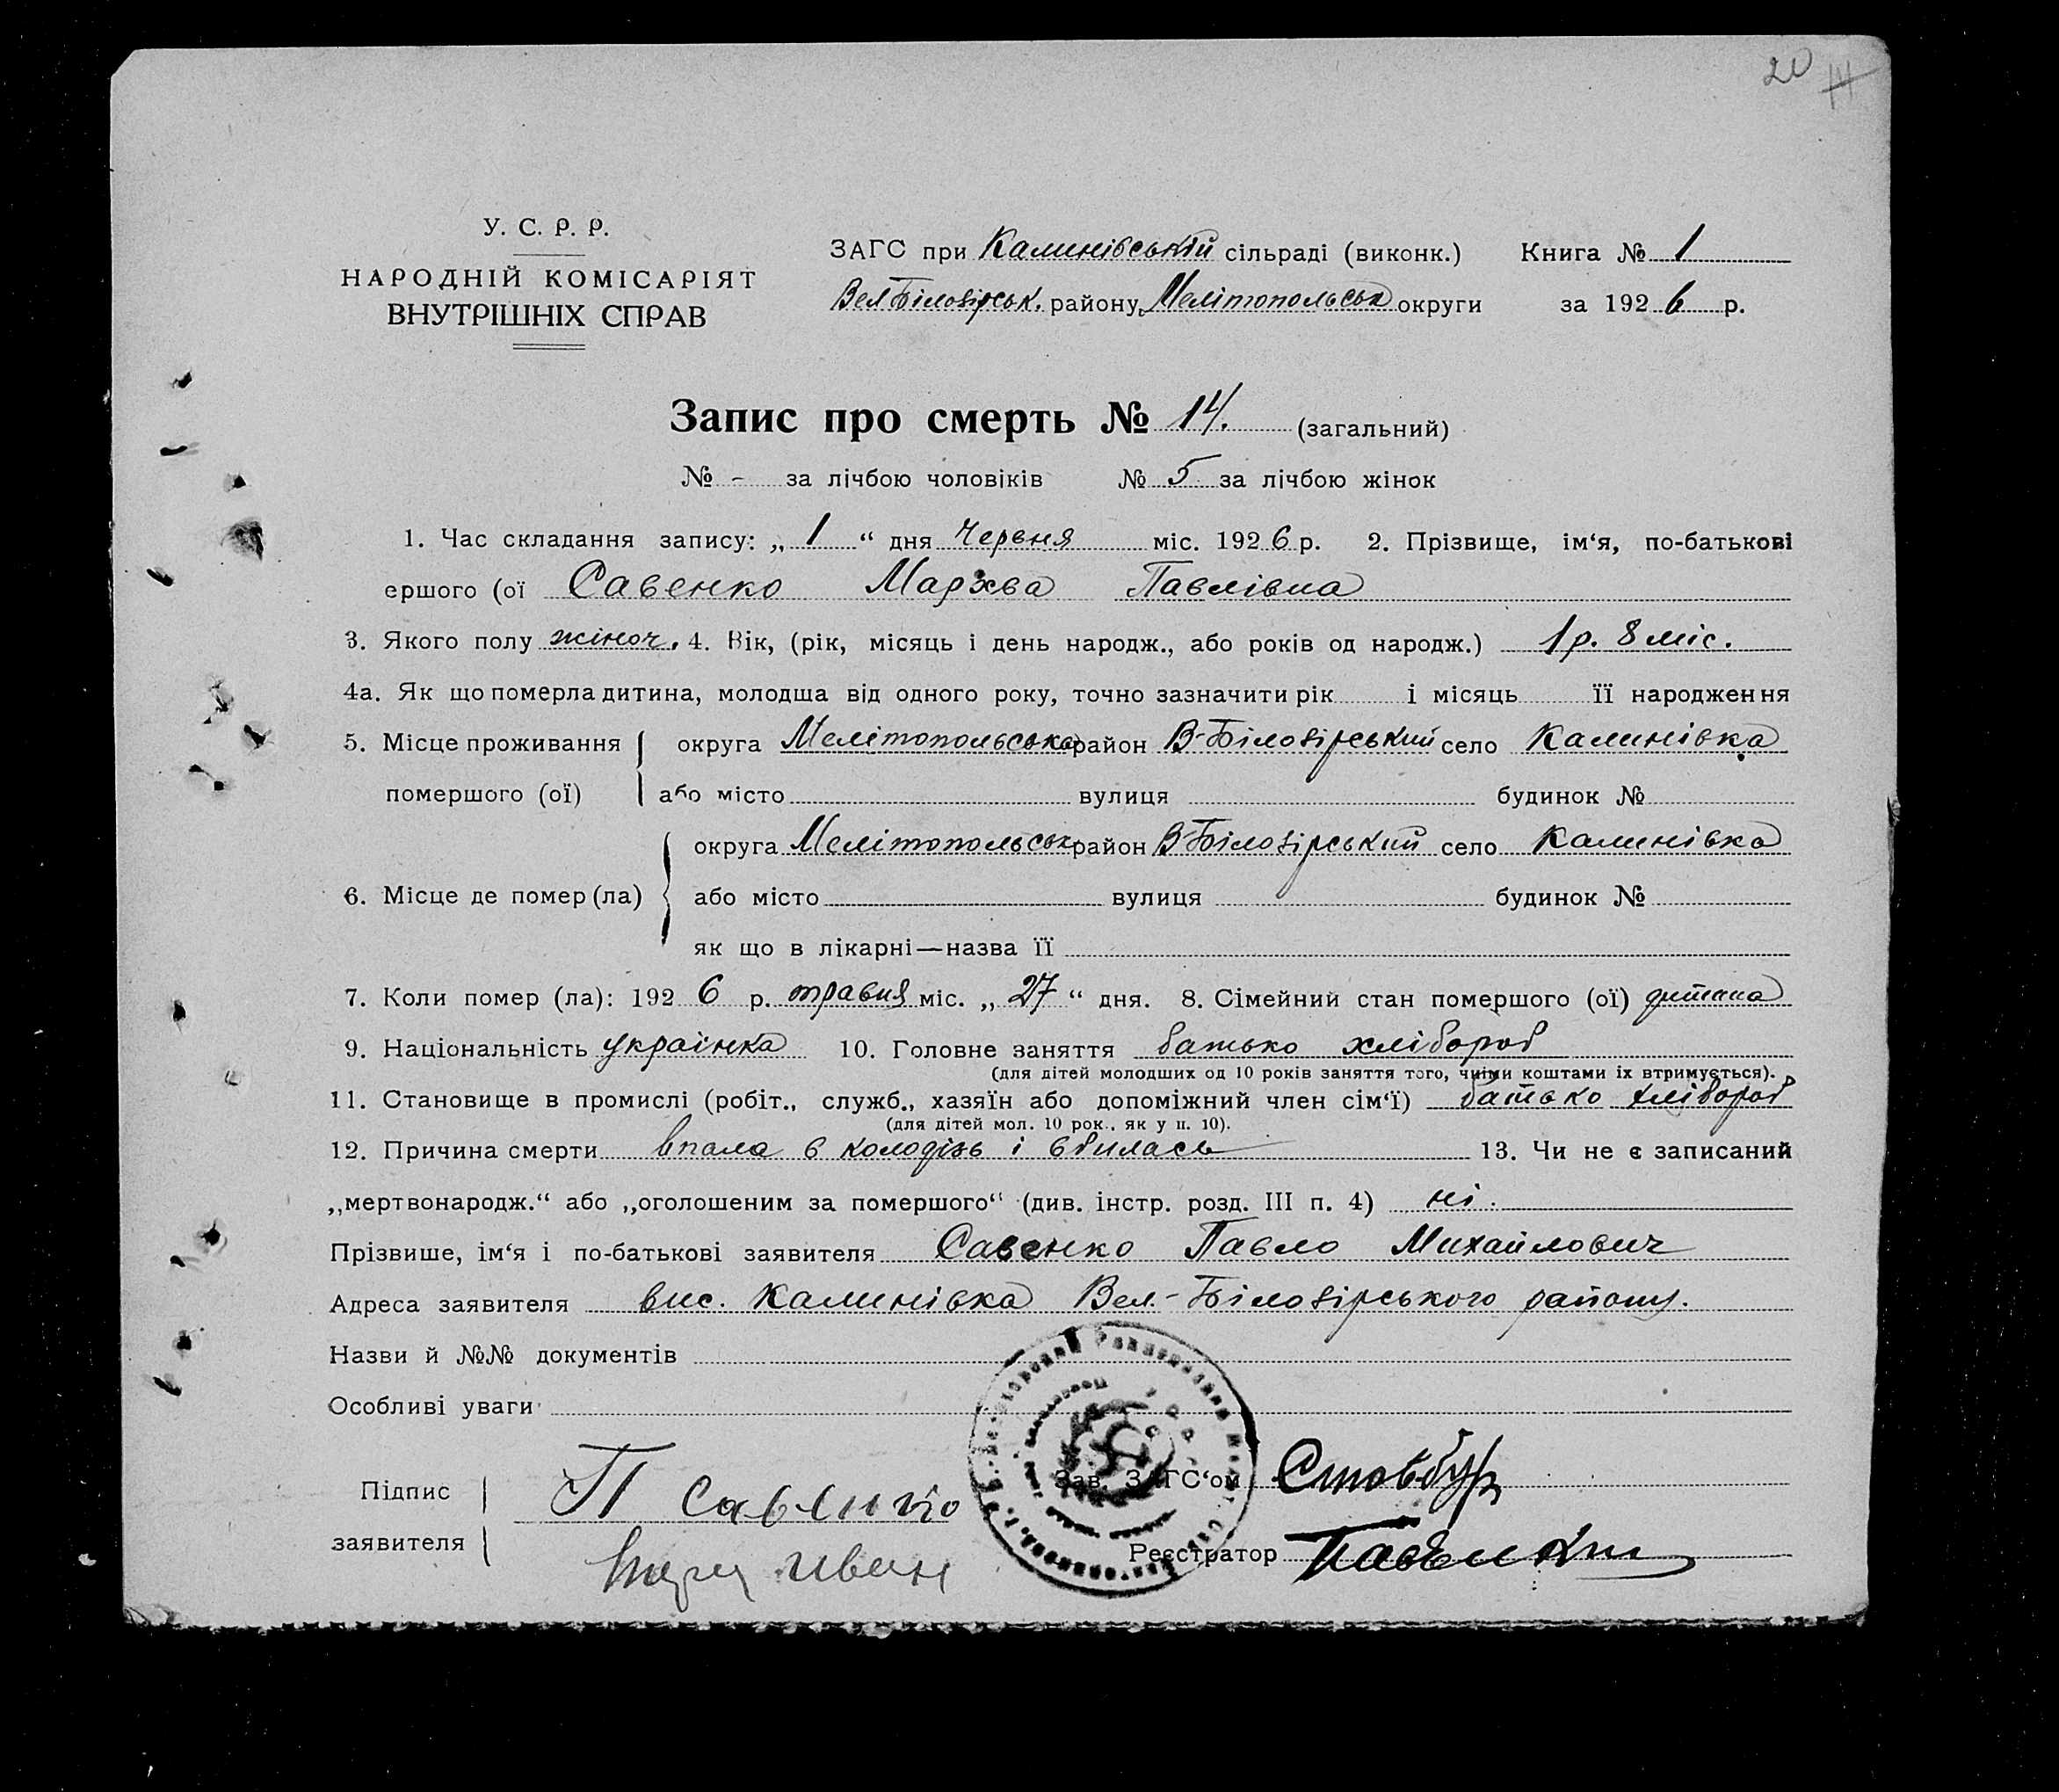 20 14
У. С. Р. Р.
НАРОДНІЙ КОМІСАРІЯТ
ВНУТРІШНІХ СПРАВ
ЗАГС при Калинівській сільраді (виконк.) Книга № 1
Вел Білозірськ. району, Мелітопольськ округи за 1926 р.
Запис про смерть № 14. (загальний)
№ - за лічбою чоловіків № 5 за лічбою жінок
1. Час складання запису: „ 1 “ дня Червня міс. 1926 р. 2. Прізвище, ім‘я, по-батькові
ершого (ої Савенко Мархва Павлівна
3. Якого полу жіноч. 4. Вік, (рік, місяць і день народж., або років од народж.) 1 р. 8 міс.
4а. Як що померла дитина, молодша від одного року, точно зазначити рік і місяць її народження
5. Місце проживання округа Мелітопольська район В-Білозірський село Калинівка
помершого (ої) або місто вулиця будинок №
округа Мелітопольськ район В-Білозірський село Калинівка
6. Місце де помер (ла) або місто вулиця будинок №
як що в лікарні—назва її
7. Коли помер (ла): 1926 р. травня міс. „ 27 “ дня. 8. Сімейний стан помершого (ої) дитина
9. Національність українка 10. Головне заняття батько хлібороб
(для дітей молодших од 10 років заняття того, чиїми коштами їх втримується).
11. Становище в промислі (робіт., служб., хазяїн або допоміжний член сім‘ї) батько хлібороб
(для дітей мол. 10 рок., як у п. 10).
12. Причина смерти впала в колодізь і вбилась 13. Чи не є записаний
„мертвонародж.“ або „оголошеним за помершого“ (див. інстр. розд. III п. 4) ні.
Прізвише, ім‘я і по-батькові заявителя Савенко Павло Михайлович
Адреса заявителя вис. Калинівка Вел.-Білозірського району.
Назви й №№ документів
Особливі уваги
Підпис заявителя П Савенко
Зав. ЗАГС‘ом Стовбур
Реєстратор